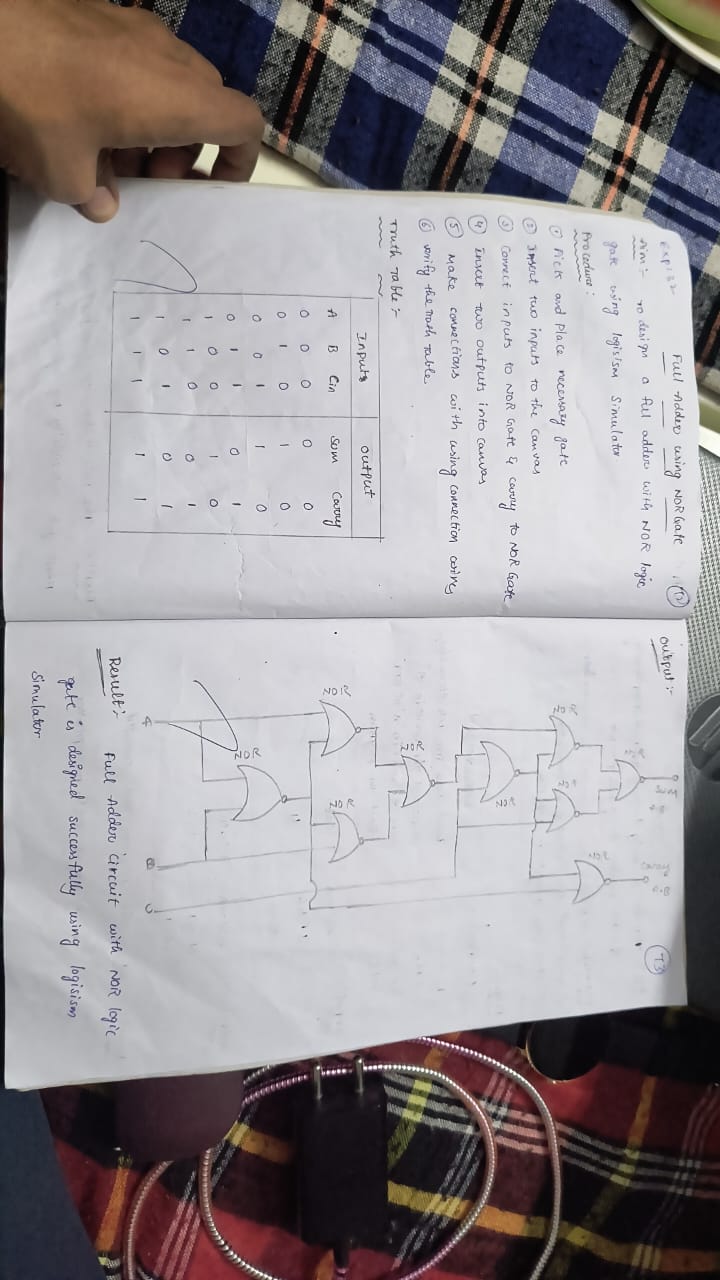 Full Adder using NOR Gate
72
Exp: 32
Aim:- To design a full adder with NOR logic
gate using logisism Simulator
Procedure:
① Pick and place necessary gate
② Insert two inputs to the canvas
③ Connect inputs to NOR Gate & carry to NOR Gate
④ Insert two outputs into canvas
⑤ Make connections with using connection wiring
⑥ verify the Truth Table.
Truth Table:-
Inputs output
A B Cin Sum Carry
0 0 0 0 0
0 1 0 1 0
0 0 1 1 0
0 1 1 0 1
1 0 0 1 0
1 1 0 0 1
1 0 1 0 1
1 1 1 1 1
73
output:-
NOR
NOR
NOR
NOR
NOR
NOR
NOR
NOR
NOR
Carry
A
B
C
Result:- Full Adder Circuit with NOR logic
gate is designed successfully using logisism
Simulator